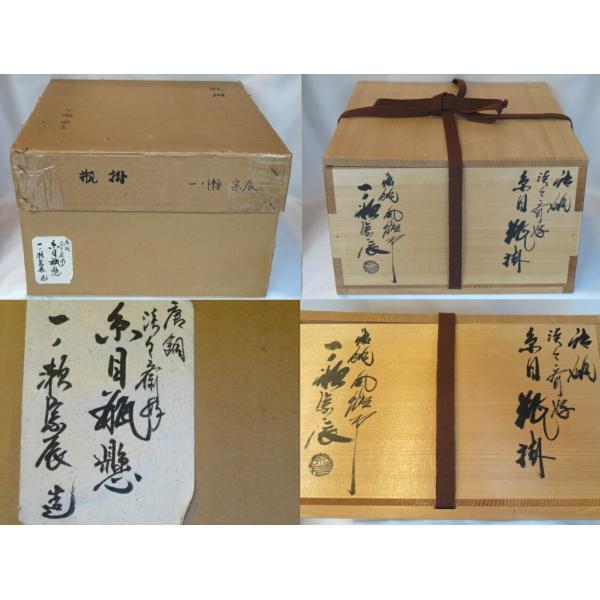 瓶掛
一ノ瀬宗辰
唐銅
淡々斎好
糸目瓶懸
一ノ瀬宗辰造
唐銅
淡々斎好
糸目瓶掛
一ノ瀬宗辰
唐銅
淡々斎好
糸目瓶懸
一ノ瀬宗辰造
唐銅
淡々斎好
糸目瓶掛
一ノ瀬宗辰